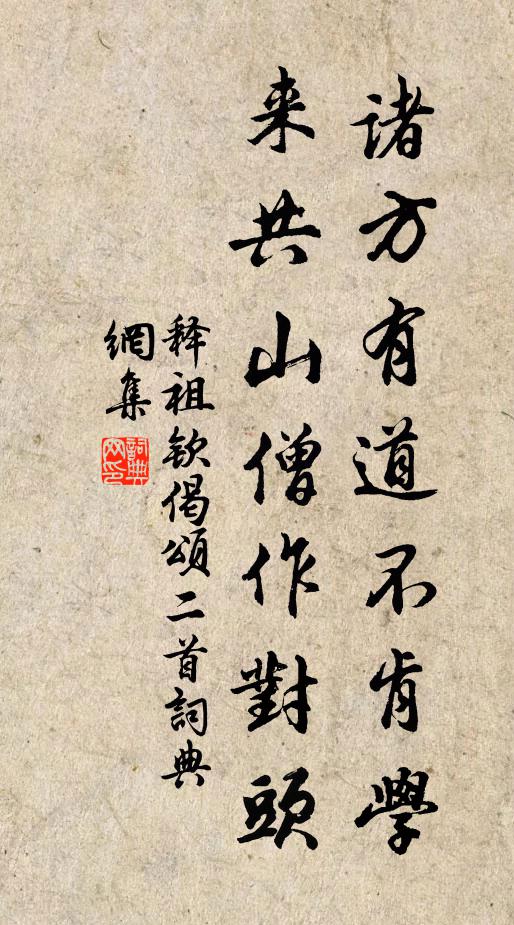 諸方有道不肯學
来共山僧作對頭
释祖钦偈頌二首詞典
網集
詞典网印